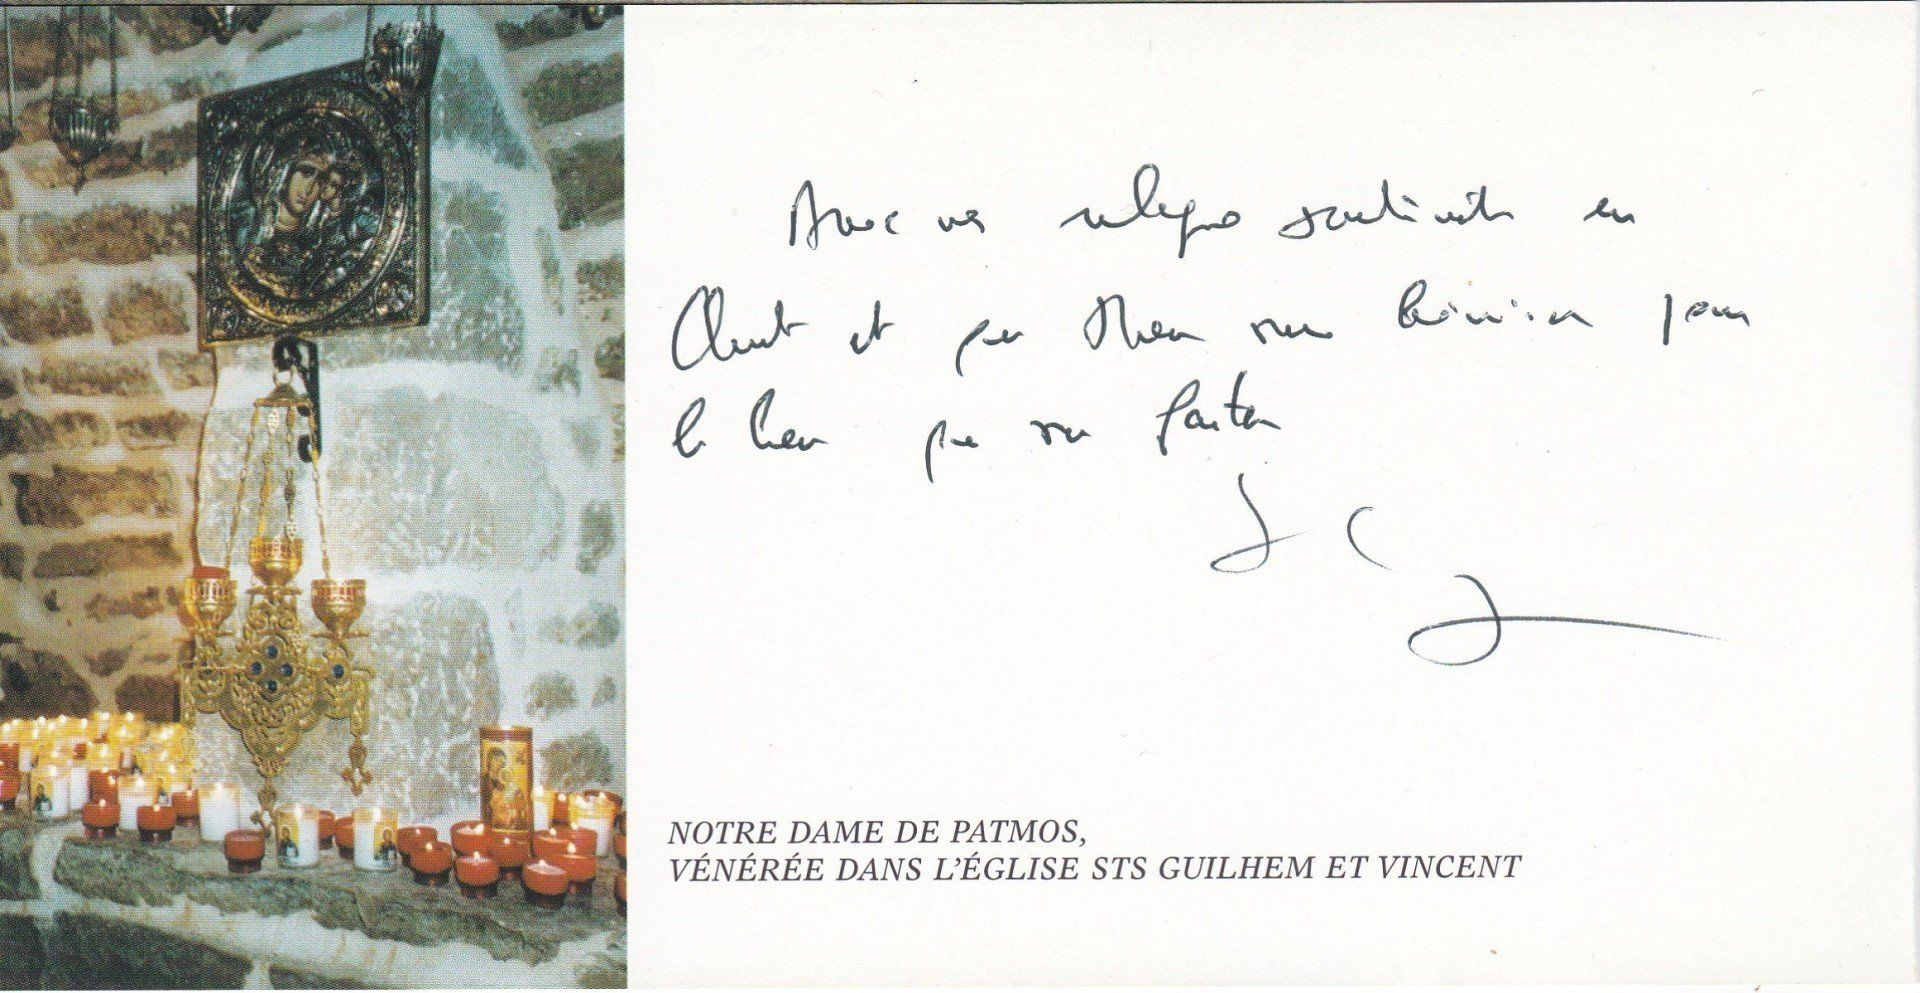 Avec nos religieux sentiments en
Christ et que Dieu vous bénisse pour
le bien que vous faites
NOTRE DAME DE PATMOS,
VÉNÉRÉE DANS L'ÉGLISE STS GUILHEM ET VINCENT